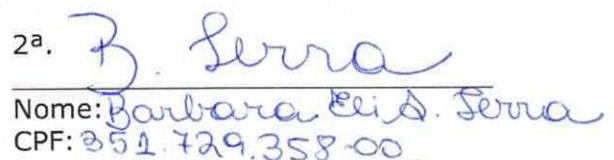 2ª. B. Serra
Nome: Barbara Eli S. Serra
CPF: 351.729.358-00